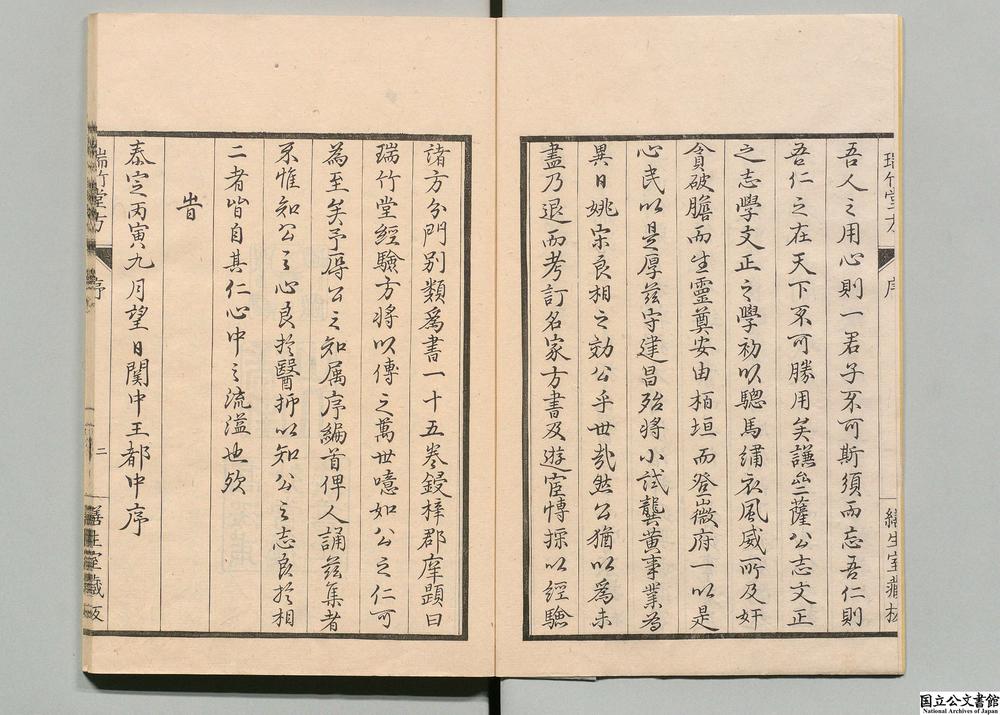 瑞竹堂方
序
繕生室藏板
吾人之用心則一君子不可斯須而忘吾仁則
吾仁之在天下不可勝用矣謙齋薩公志文正
之志學文正之學初以驄馬繡衣風威所及奸
貪破膽而生靈奠安由栢垣而登薇府一以是
心民以是厚茲守建昌殆將小試龔黃事業為
異日姚宋良相之効公乎世哉然公猶以爲未
盡乃退而考訂名家方書及遊宦愽採以經驗
諸方分門別類爲書一十五卷鋟梓郡庠題曰
瑞竹堂經驗方將以傳之萬世噫如公之仁可
為至矣予辱公之知属序編首俾人誦茲集者
不惟知公之心良於醫抑以知公之志良於相
二者皆自其仁心中之流溢也欤
旹
泰定丙寅九月望日関中王都中序
瑞竹堂方
序
二
繕生室藏板
国立公文書館
National Archives of Japan